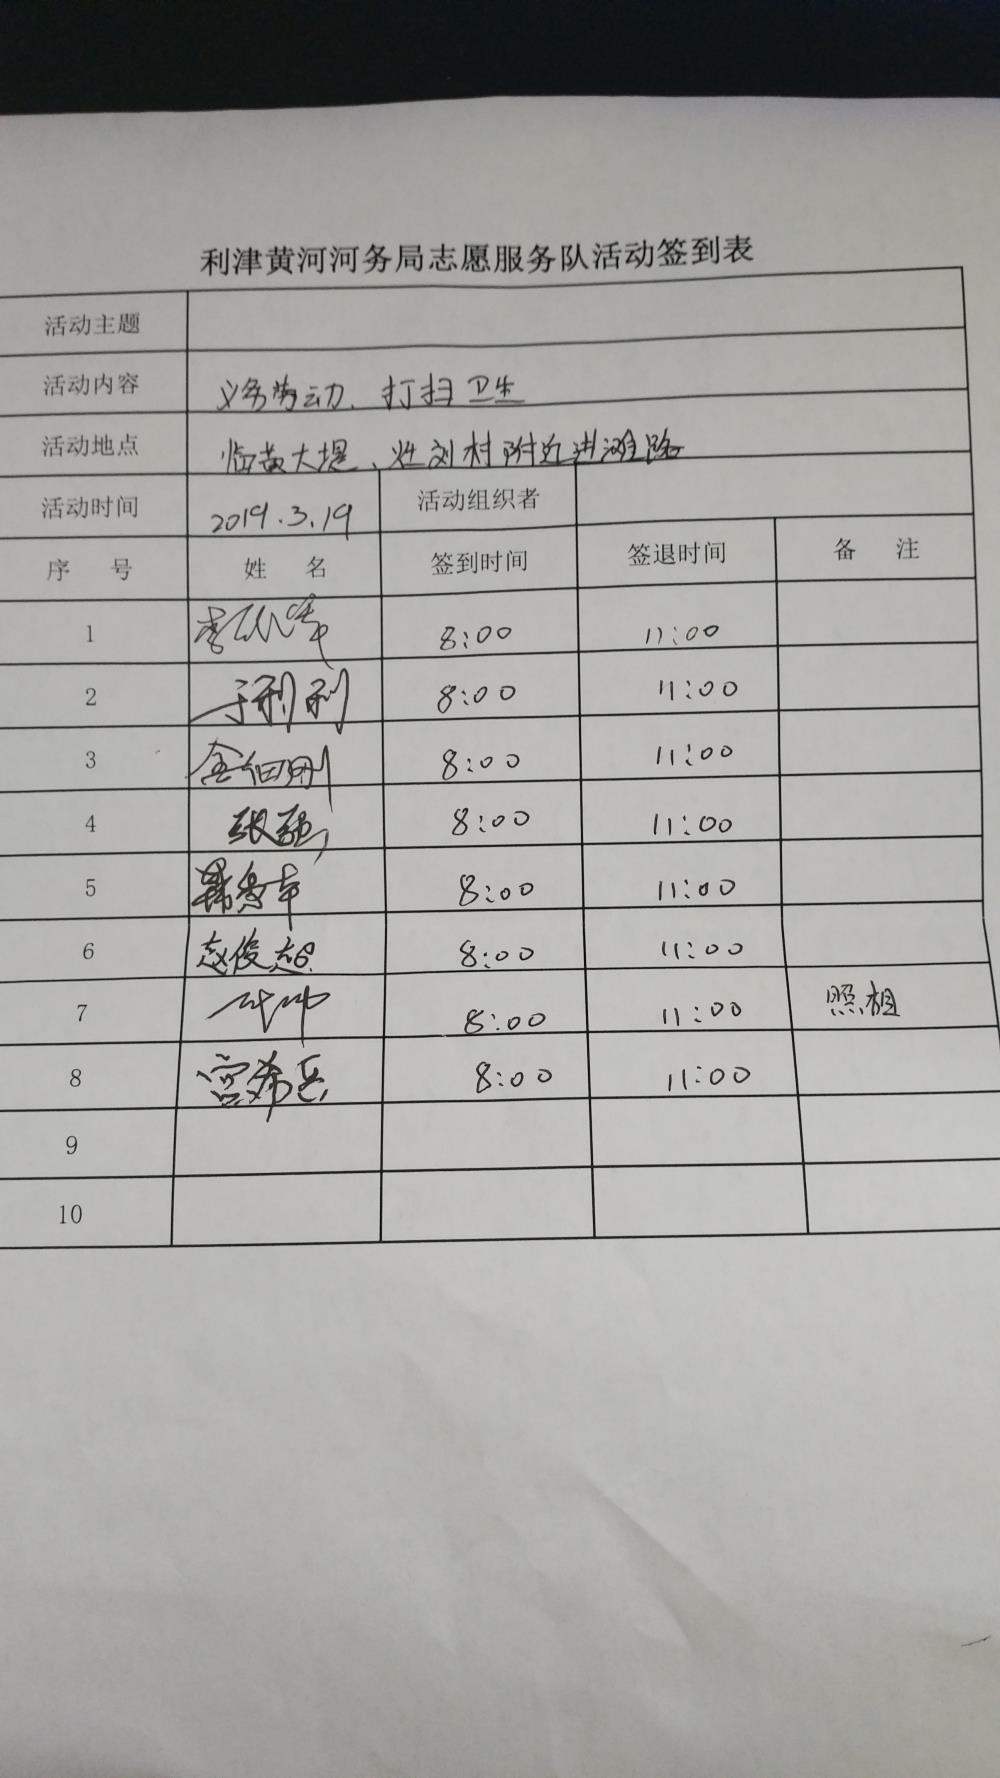 利津黄河河务局志愿服务队活动签到表
活动主题
活动内容 义务劳动、打扫卫生
活动地点 临黄大堤、刘村附近进滩路
活动时间 2019.3.19 活动组织者
序 号 姓 名 签到时间 签退时间 备 注
1 李 8:00 11:00
2 于利利 8:00 11:00
3 金 刚 8:00 11:00
4 张强 8:00 11:00
5 8:00 11:00
6 赵俊超 8:00 11:00
7 8:00 11:00 照相
8 宫希兵 8:00 11:00
9
10